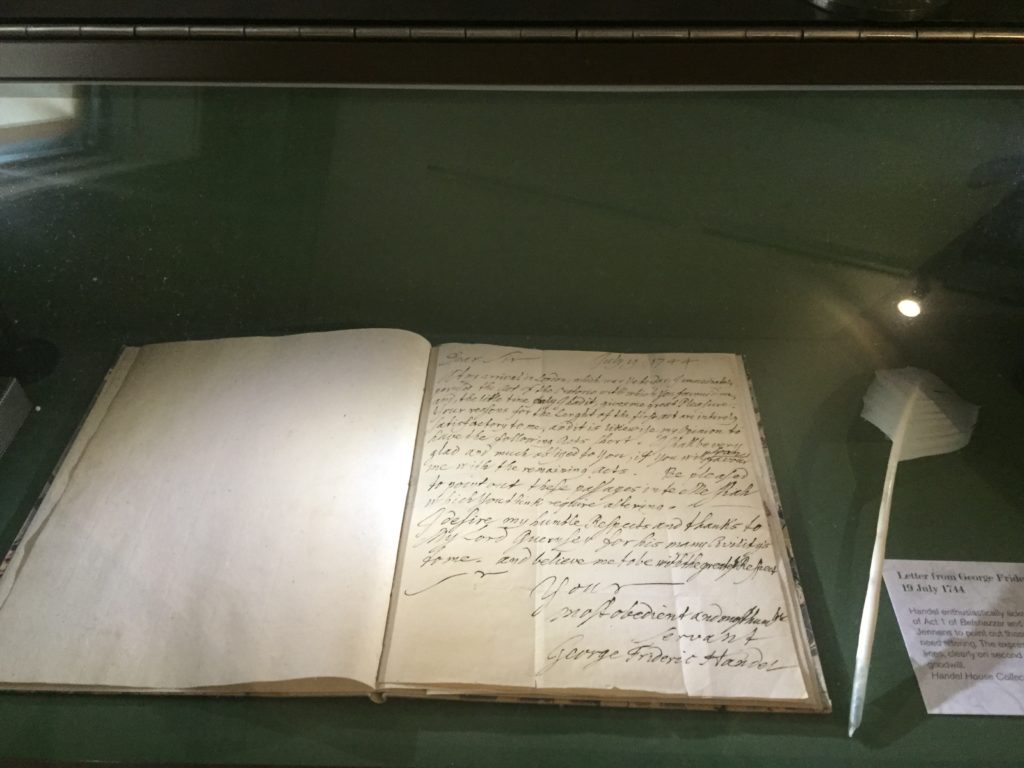 Dear Sir July 19 1744
At my arrival in London, which was Yesterday, I immediately
perused the Act of the Oratorio with which you favour'd me,
and, the little time only I had it, gives me great Pleasure.
Your reasons for the Lenght of the first act are intirely
satisfactory to me, and it is likewise my Opinion to
have the following Acts short. I shall be very
glad and much obliged to you, if you will soon favour
me with the remaining Acts. Be pleased
to point out these passages in the Messiah
which You think require altering.
I desire my humble Respects and thanks to
My Lord Guernsey for his many Civility's
to me. and believe me to be with the greatest Respect
Sr
Your
most obedient and most humble
Servant
George Frideric Handel
Letter from George Fride
19 July 1744
Handel enthusiastically
of Act 1 of Belshazzar and
Jennens to point out
need altering. The
lines, clearly on second
goodwill.
Handel House Collec